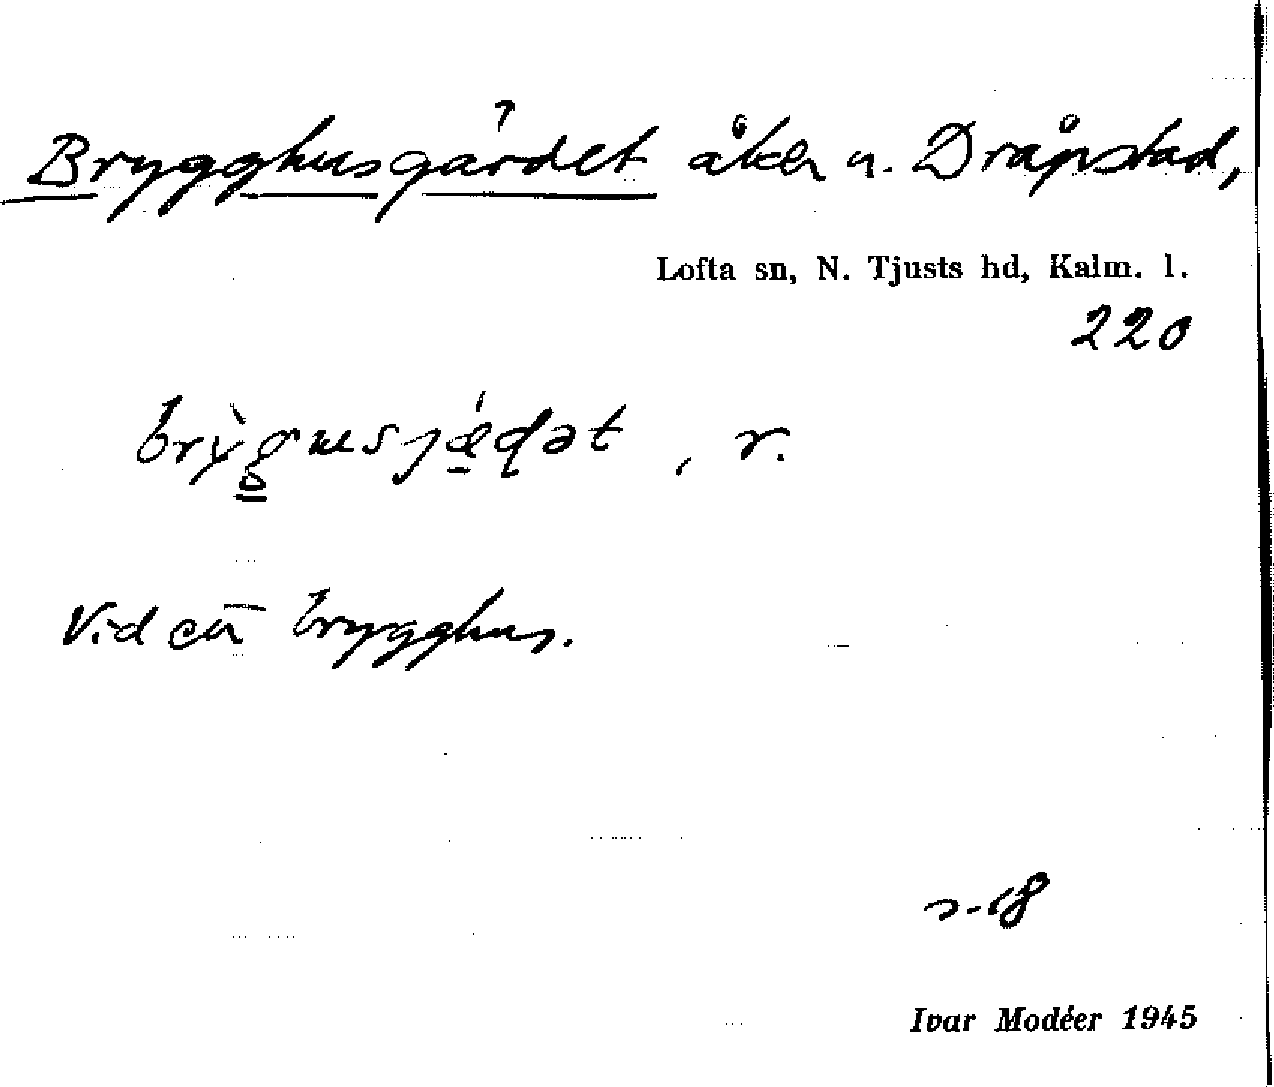 Brygghusgärdet åker n. Dråpstad,
Lofta sn, N. Tjusts hd, Kalm. l.
220
, r.
Vid ett brygghus.
s. 18
Ivar Modéer 1945